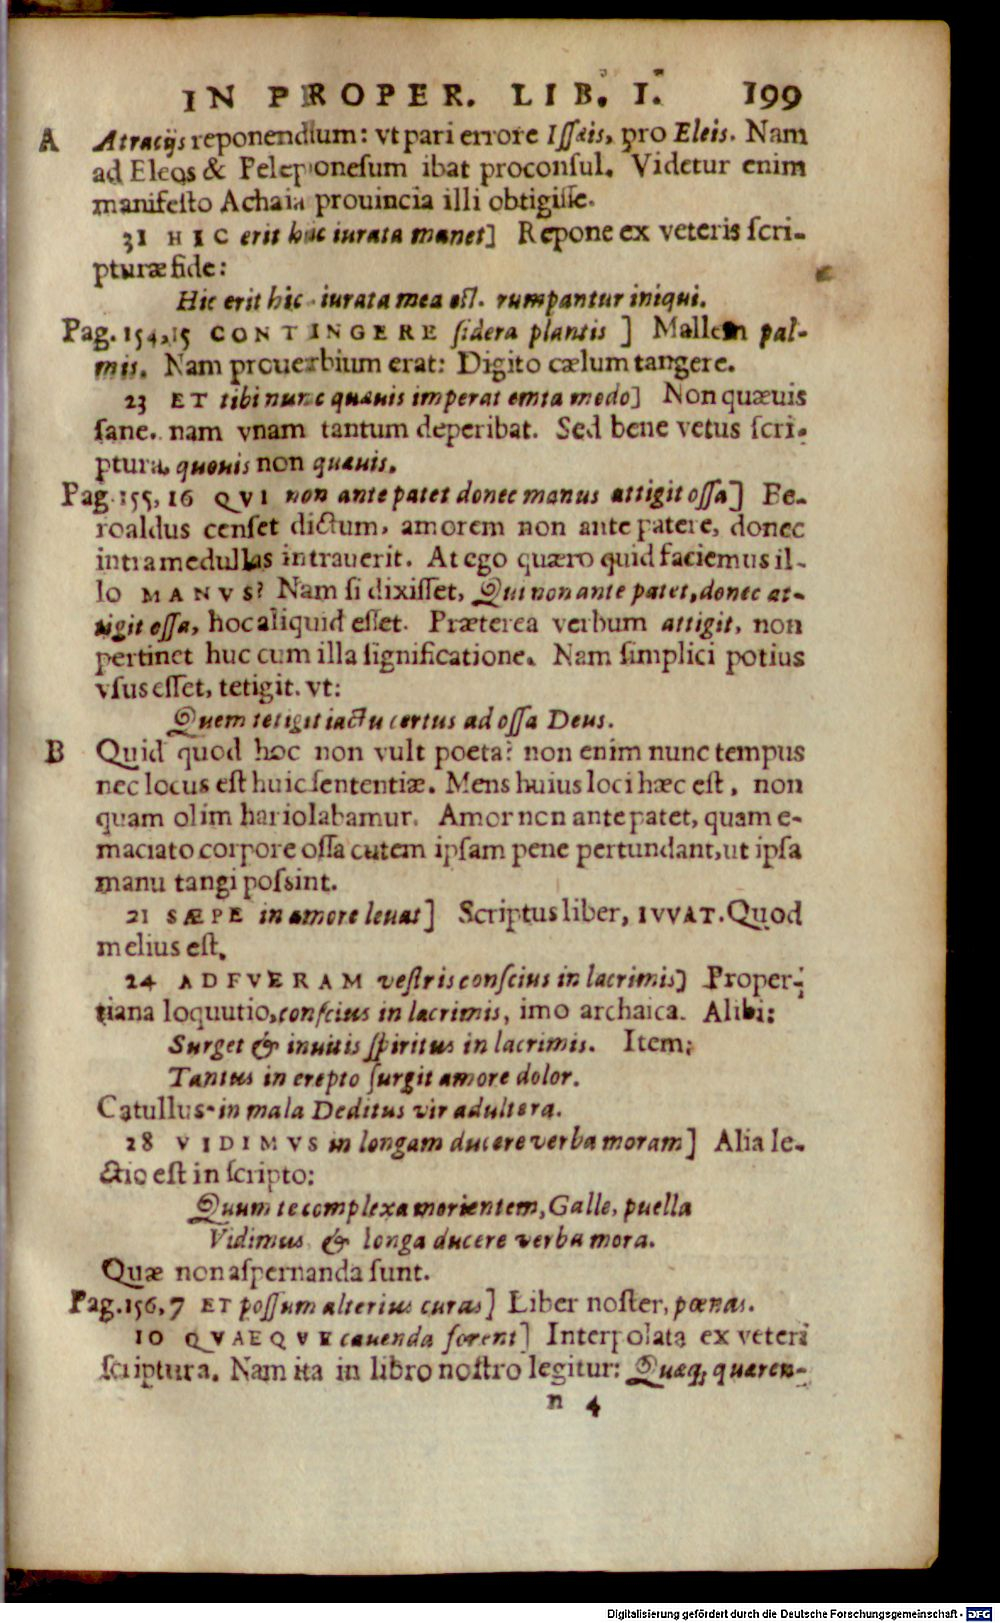 IN PROPER. LIB. I. 199
A Atracijs reponendum: vt pari errore Issæis, pro Eleis. Nam
ad Eleos & Peleponesum ibat proconsul. Videtur enim
manifesto Achaia prouincia illi obtigisse.
31 HIC erit hic iurata manet] Repone ex veteris scri-
pturæ fide:
Hic erit hic iurata mea est. rumpantur iniqui.
Pag. 154,15 CONTINGERE sidera plantis ] Mallem pal-
mis. Nam prouerbium erat: Digito cælum tangere.
23 ET tibi nunc quauis imperat emta modo] Non quæuis
sane. nam vnam tantum deperibat. Sed bene vetus scri-
ptura, quouis non quauis.
Pag. 155, 16 QVI non ante patet donec manus attigit ossa] Be-
roaldus censet dictum, amorem non ante patere, donec
intra medullas intrauerit. At ego quæro quid faciemus il-
lo MANVS? Nam si dixisset, Qui non ante patet, donec at-
tigit ossa, hoc aliquid esset. Præterea verbum attigit, non
pertinet huc cum illa significatione. Nam simplici potius
vsus esset, tetigit. vt:
Quem tetigit iactu certus ad ossa Deus.
B Quid quod hoc non vult poeta? non enim nunc tempus
nec locus est huic sententiæ. Mens huius loci hæc est, non
quam olim hariolabamur. Amor non ante patet, quam e-
maciato corpore ossa cutem ipsam pene pertundant, ut ipsa
manu tangi possint.
21 SÆPE in amore leuat] Scriptus liber, IVVAT. Quod
melius est.
24 ADFVERAM vestris conscius in lacrimis] Proper-
tiana loquutio, conscius in lacrimis, imo archaica. Alibi:
Surget & inuitis spiritus in lacrimis. Item:
Tantus in erepto surgit amore dolor.
Catullus in mala Deditus vir adultera.
28 VIDIMVS in longam ducere verba moram] Alia le-
ctio est in scripto:
Quum te complexa morientem, Galle, puella
Vidimus & longa ducere verba mora.
Quæ non aspernanda sunt.
Pag. 156, 7 ET possum alterius curas] Liber noster, pœnas.
10 QVAEQVE cauenda forent] Interpolata ex veteri
scriptura. Nam ita in libro nostro legitur: Quæq; quæren-
n 4
Digitalisierung gefördert durch die Deutsche Forschungsgemeinschaft - DFG